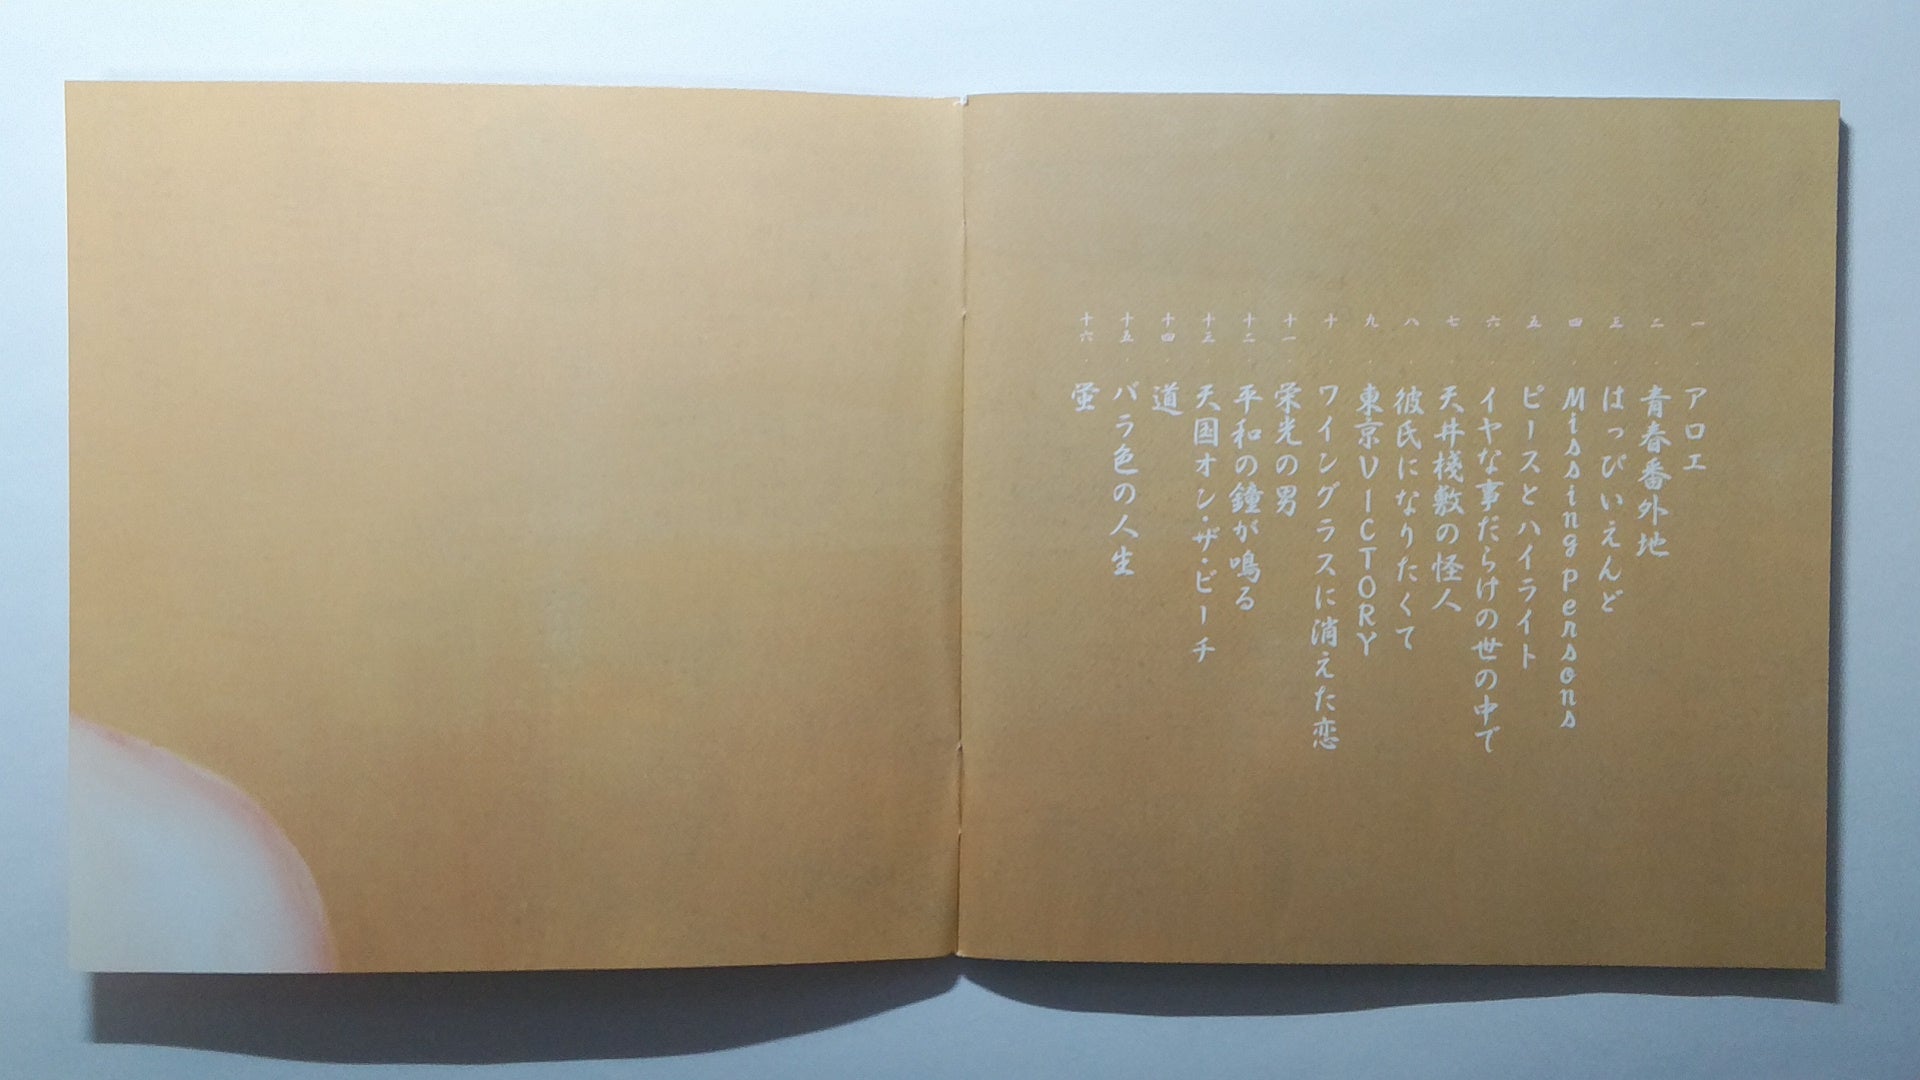 一. アロエ
二. 青春番外地
三. はっぴいえんど
四. Missing Persons
五. ピースとハイライト
六. イヤな事だらけの世の中で
七. 天井棧敷の怪人
八. 彼氏になりたくて
九. 東京VICTORY
十. ワイングラスに消えた恋
十一. 栄光の男
十二. 平和の鐘が鳴る
十三. 天国オン・ザ・ビーチ
十四. 道
十五. バラ色の人生
十六. 蛍